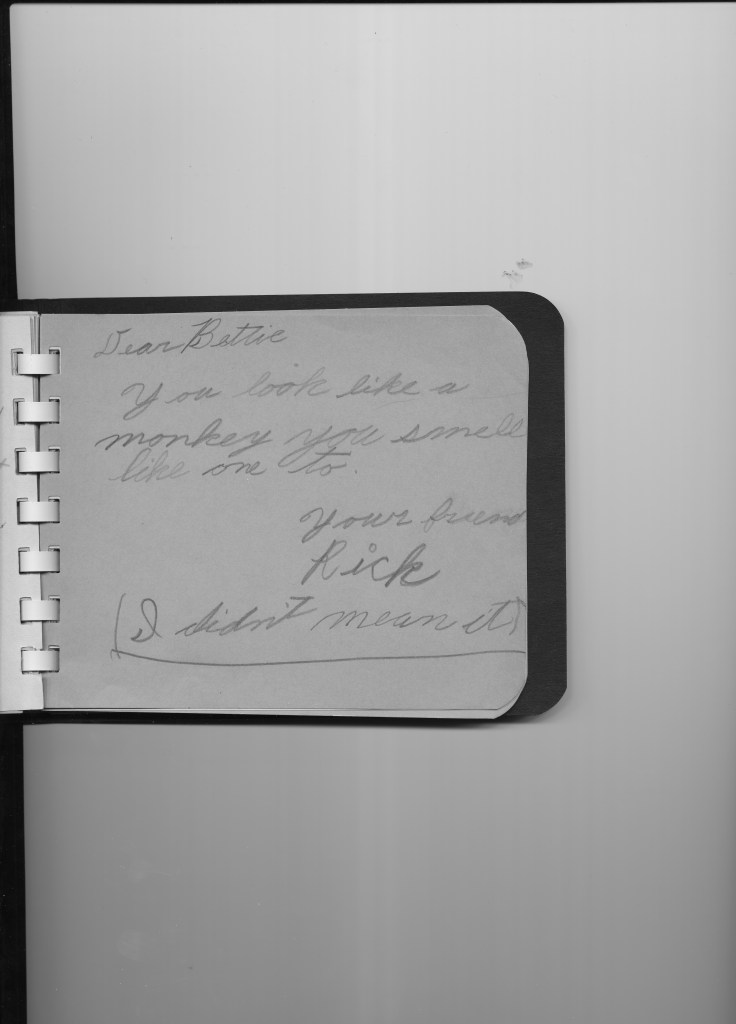 Dear Bettie
You look like a
monkey you smell
like one to.
Your friend
Rick
(I didn't mean it)